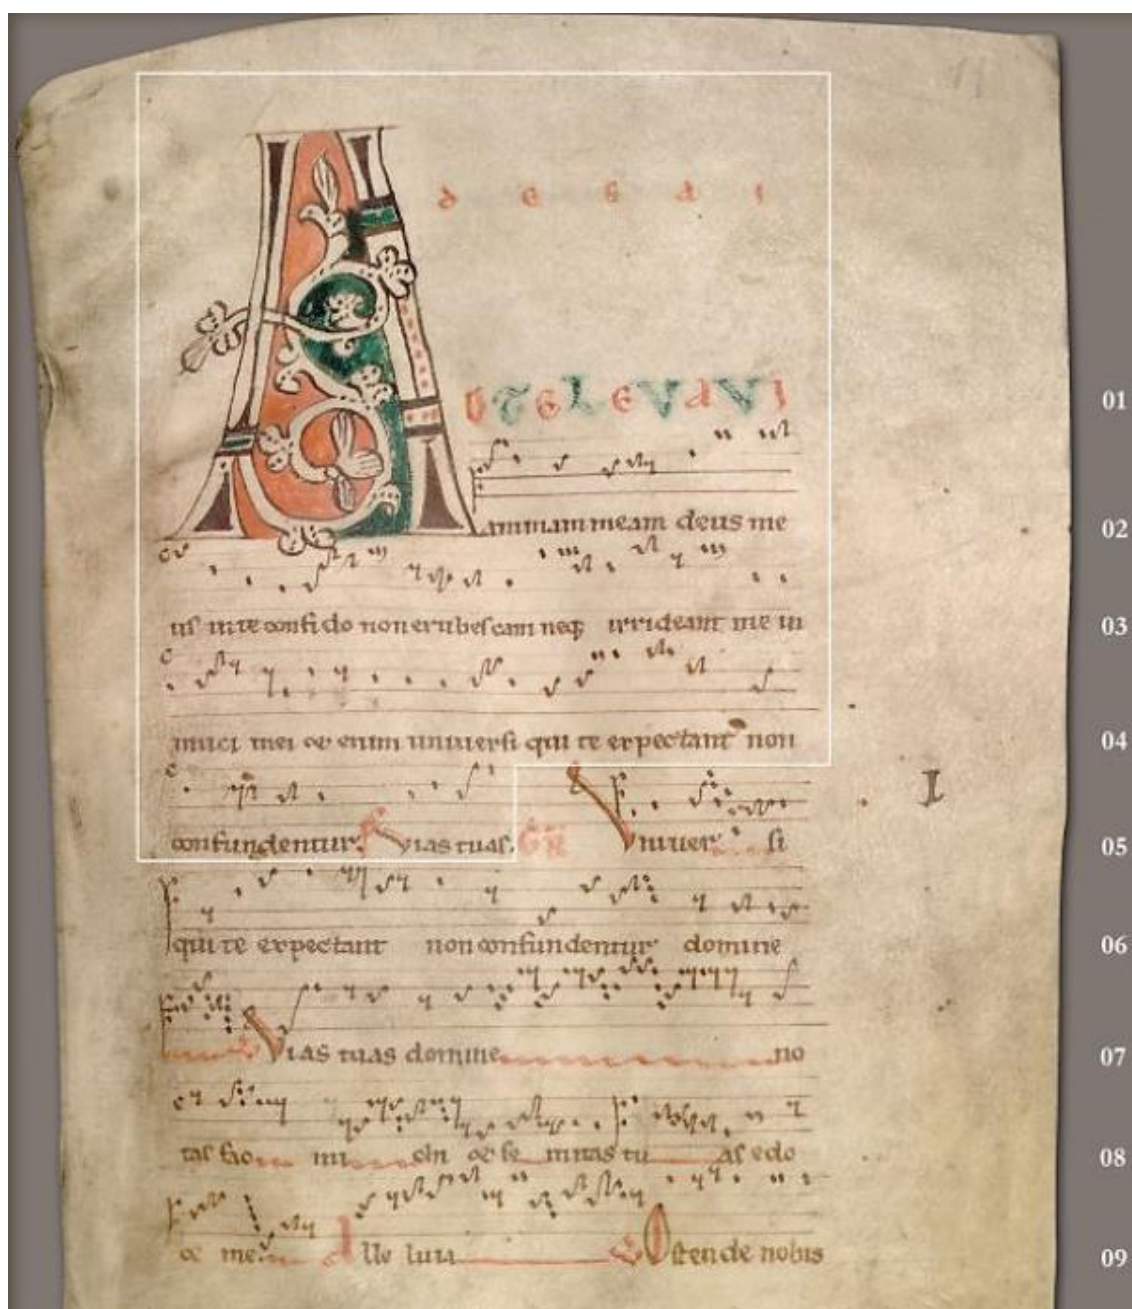 A d e e a i
D TE LEVAVI
Animam meam deus me
us in te confido non erubescam neq; irrideant me in
imici mei &enim uniuersi qui te expectant non
confundentur. Vias tuas. GR Vniuer si
qui te expectant non confundentur domine
Vias tuas domine no
tas fac mi chi & se mitas tu as edo
ce me. Alle luia Ostende nobis
01
02
03
04
05
06
07
08
09